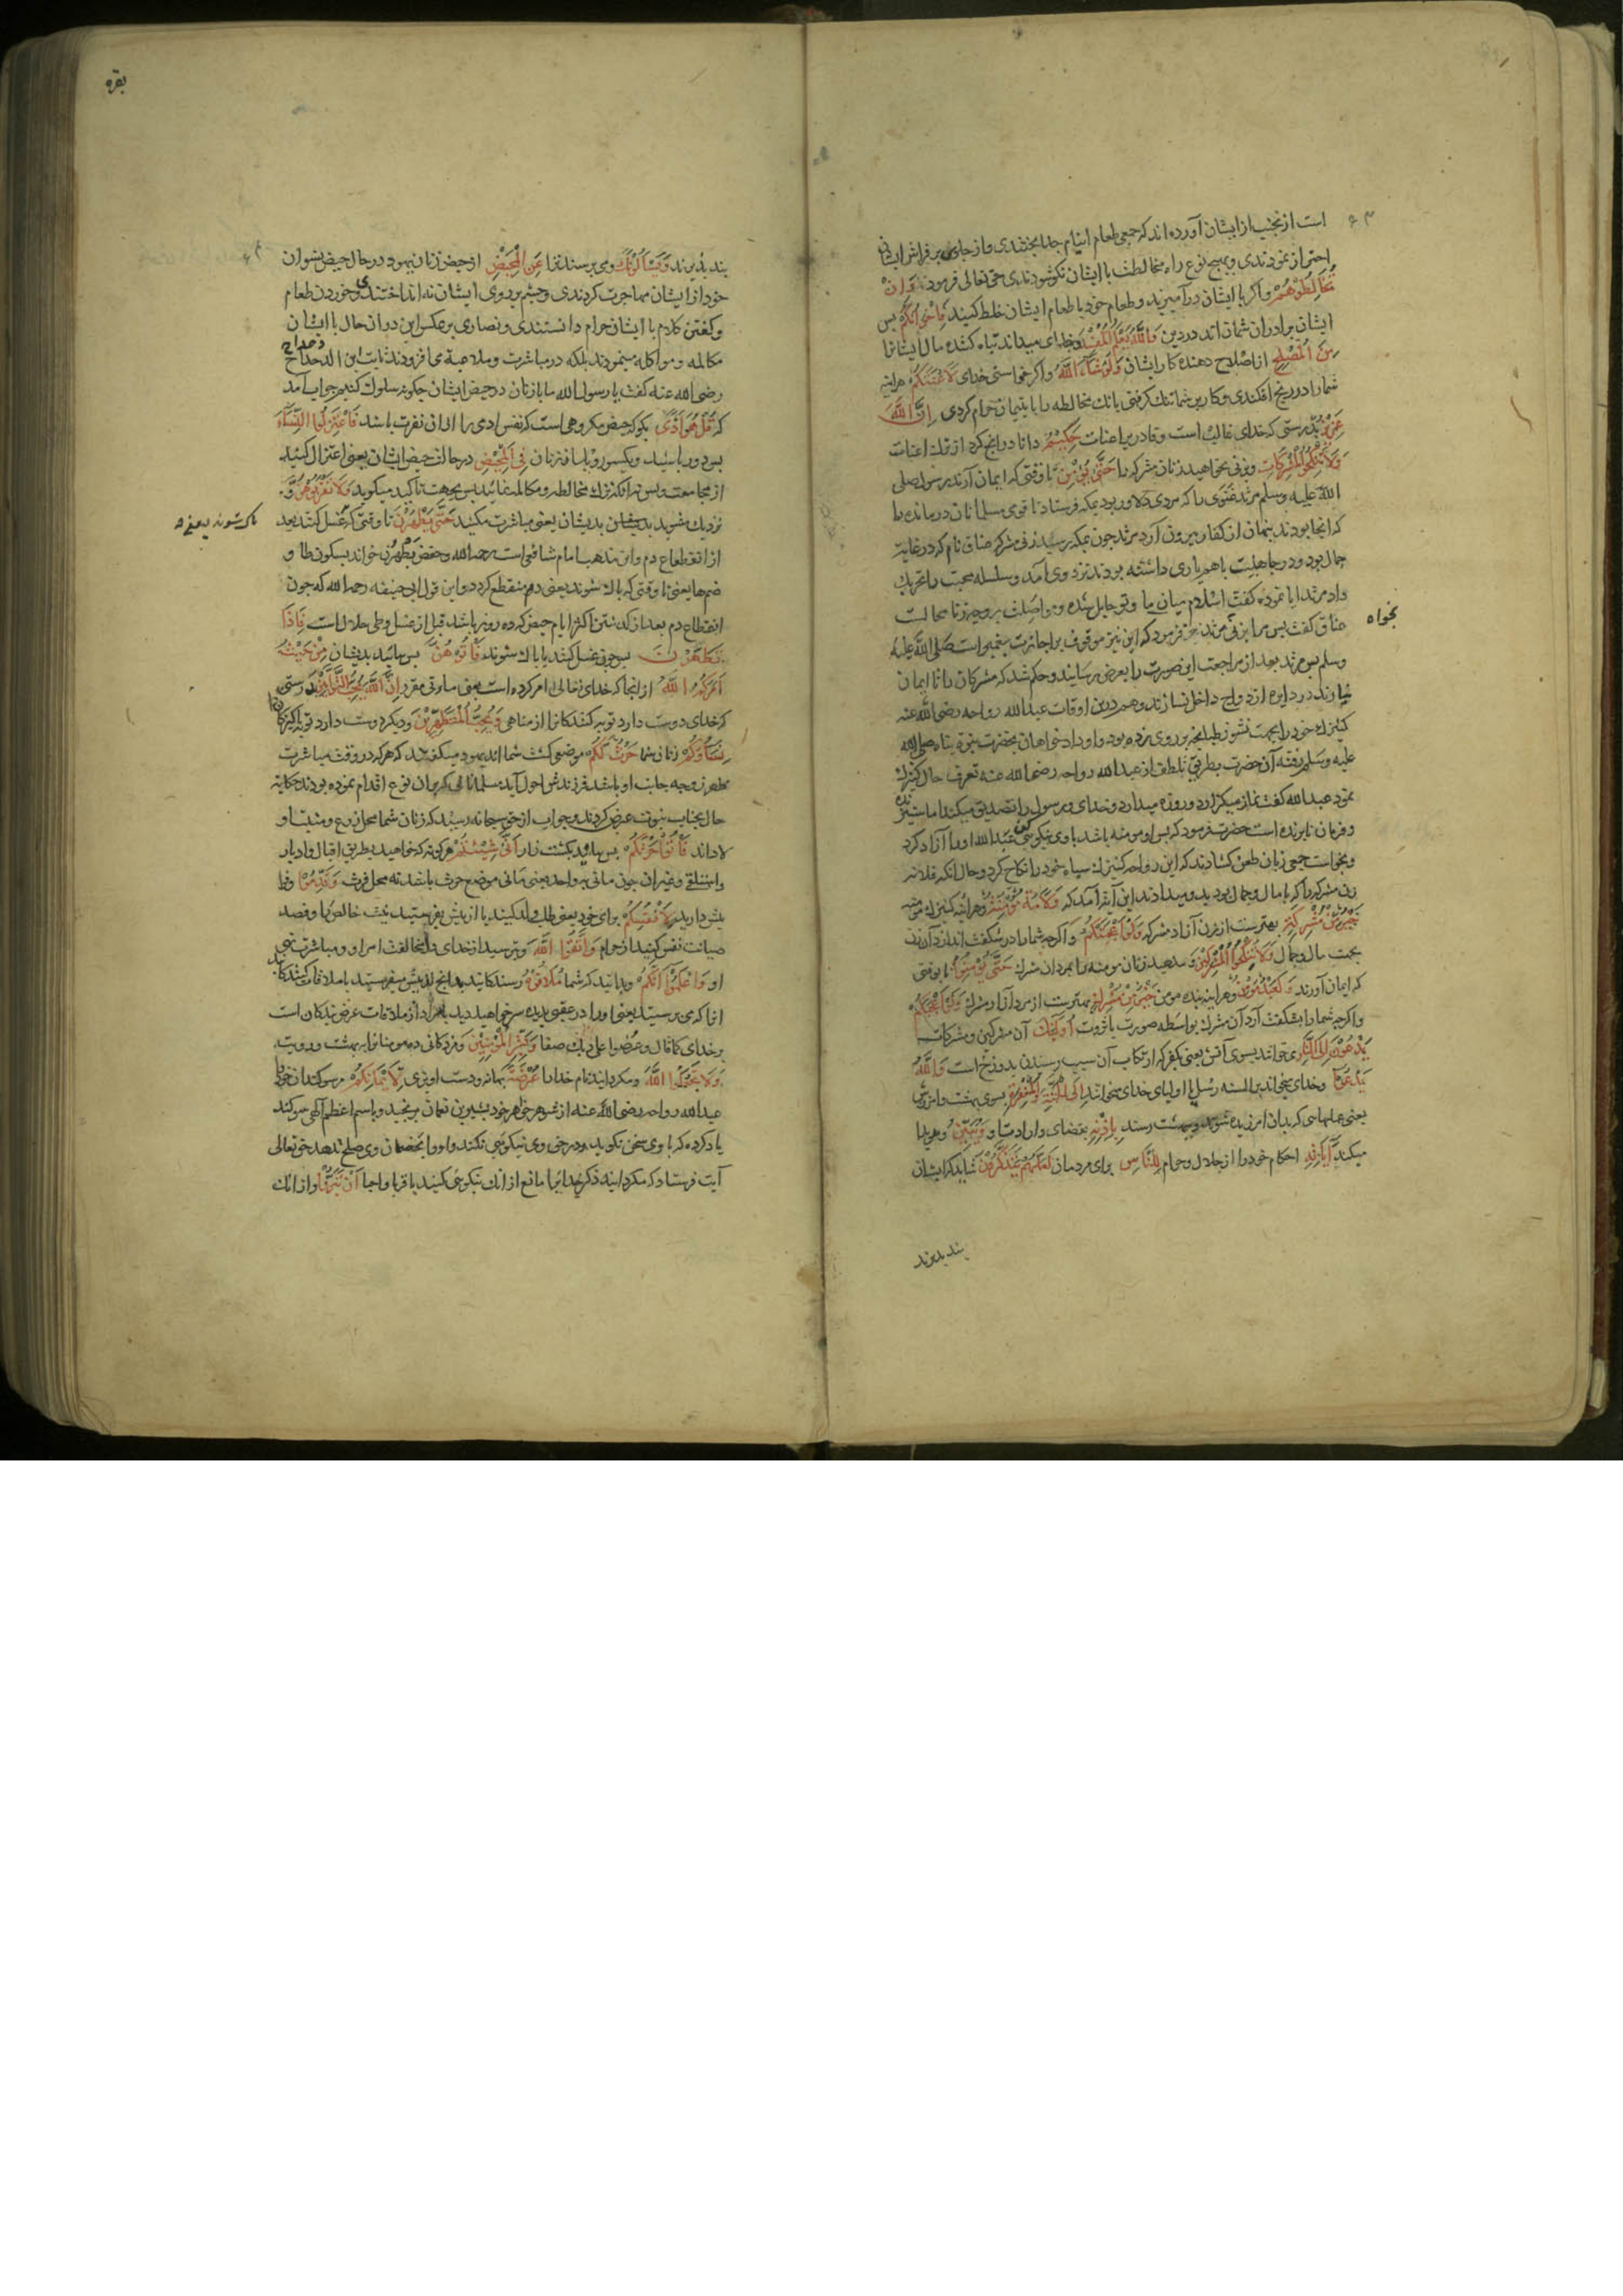 است از تجنب از ایشان آورده اند که جمعی طعام ایتام جدا پختندی و از جلوس بر فراش ایشان
احتراز نمودندی و بهیچ نوع راه مخالطت با ایشان نگشودندی حق تعالی فرمود که وَاِنْ
تُخَالِطُوْهُمْ و اگر با ایشان در آمیزید و طعام خود با طعام ایشان خلط کنید فَاِخْوَانُکُمْ پس
ایشان برادران شمااند در دین وَاللّٰهُ یَعْلَمُ الْمُفْسِدَ و خدای میداند تباه کننده مال ایشانرا
مِنَ الْمُصْلِحِ از اصلاح دهنده کار ایشان وَلَوْ شَآءَ اللّٰهُ و اگر خواستی خدای لَاَعْنَتَکُمْ هر اینه
شما را در رنج افکندی و کار بر شما تنک کرفتی بانک مخالطه را با یتیمان حرام کردی اِنَّ اللّٰهَ
عَزِیْزٌ بدرستی که خدای غالبست و قادر بر اعنات حَکِیْمٌ دانا در انچ کرد از ترک اعنات
وَلَا تَنْکِحُوا الْمُشْرِکَاتِ و بزنی نخواهید زنان مشرکه را حَتّٰی یُؤْمِنَّ تا وقتی که ایمان آرند رسول صلی
اللّٰه علیه وسلم مرثد غنوی را که مردی دلاور بود بمکه فرستاد تا قومی مسلمانان درمانده را
که انجا بودند پنهان از کفار بیرون آرد مرثد چون بمکه رسید زنی مشرکه عناق نام که در غایت
جمال بود و در جاهلیت با هم یاری داشته بودند نزد وی آمد و سلسله محبت را تحریک
داد مرثد ابا نموده گفت اسلام میان ما و تو حایل شده و مواصلت بر وجه زنا محالست
عناق گفت پس مرا بزنی مرثد فرمود که این نیز موقوف بر اجازت پیغمبر است صَلَّی اللّٰهُ عَلَیْهِ
بخواه
وسلم پس مرثد بعد از مراجعت این صورت را بعرض رسانید و حکم شد که مشرکان را تا ایمان
نیارند در دایره ازدواج داخل نسازند و هم درین اوقات عبد الله رواحه رضی اللّٰه عنه
کنیزک خود را بجهت نشوز طپانچه بر روی زده بود و او دادخواهان بحضرت نبوة پناه صلی الله
علیه وسلم رفته آن حضرت بطریق تلطف از عبد الله رواحه رضی الله عنه تعرف حال کنیزک
نمود عبد الله گفت نماز میکزارد و روزه میدارد و خدای و رسول را تصدیق میکند اما ستیزنده
و فرمان نابرنده است حضرت فرمود که پس او مومنه باشد با وی نیکوئی کن عبد الله او را آزاد کرد
و بخواست جمعی زبان طعن گشادند که ابن رواحه کنیزک سیاه خود را نکاح کرد و حال آنکه فلانه
زن مشرکه را که با مال و جمال بود بدو میدادند این آیه آمد که وَلَاَمَةٌ مُّؤْمِنَةٌ و هر اینه کنیزک مومنه
خَیْرٌ مِّنْ مُّشْرِکَةٍ بهترست از زن آزاد مشرکه وَلَوْ اَعْجَبَتْکُمْ و اگرچه شما را در شگفت اندازد آن زن
بجهت مال و جمال وَلَا تُنْکِحُوا الْمُشْرِکِیْنَ و مدهید زنان مومنه را بمردان مشرک حَتّٰی یُؤْمِنُوْا تا بوقتی
که ایمان آورند وَلَعَبْدٌ مُّؤْمِنٌ و هر اینه بنده مومن خَیْرٌ مِّنْ مُّشْرِکٍ بهترست از مرد آزاد مشرک وَلَوْ اَعْجَبَکُمْ
و اگرچه شما را بشگفت آرد آن مشرک بواسطه صورت یا ثروت اُولٰئِکَ آن مشرکین و مشرکات
یَدْعُوْنَ اِلَی النَّارِ میخوانند بسوی آتش یعنی بکفر که ارتکاب آن سبب رسیدن بدوزخ است وَاللّٰهُ
یَدْعُوْا و خدای میخواند بر السنه رسل یا اولیای خدای میخوانند اِلَی الْجَنَّةِ وَالْمَغْفِرَةِ بسوی بهشت و امرزش
یعنی عملهایی که بدان امرزیده شوند و ببهشت رسند بِاِذْنِهِ بقضای و ارادت او وَیُبَیِّنُ و هویدا
میکند اٰیَاتِهِ احکام خود را از حلال و حرام لِلنَّاسِ برای مردمان لَعَلَّهُمْ یَتَذَکَّرُوْنَ شاید که ایشان
پند پذیرند
بقره
پند پذیرند وَیَسْاَلُوْنَکَ و می پرسند ترا عَنِ الْمَحِیْضِ از حیض زنان یهود در حال حیض نسوان
خود از ایشان مهاجرت کردندی و چشم بر روی ایشان نه انداختندی و خوردن طعام
و گفتن کلام با ایشان حرام دانستندی و نصاری بر عکس این در ان حال با ایشان
مکالمه و مواکله مینمودند بلکه در مباشرت و ملاعبه می افزودند ثابت ابن الدحداح
رضی الله عنه گفت یا رسول الله ما با زنان در حیض ایشان چگونه سلوک کنیم جواب آمد
که قُلْ هُوَ اَذًی بگو که حیض مکروهی است که نفس ادمی را از ان نفرت باشد فَاعْتَزِلُوا النِّسَآءَ
پس دور باشید و یکسو روید از زنان فِی الْمَحِیْضِ در حالت حیض ایشان یعنی اعتزال کنید
از مجامعت و بس نه انکه ترک مخالطه و مکالمه نمائید پس بجهت تاکید میگوید وَلَا تَقْرَبُوْهُنَّ و
نزدیک مشوید بدیشان یعنی مباشرت مکنید حَتّٰی یَطْهُرْنَ تا وقتی که غسل کنند بعد
پاک شوند یعنی
از انقطاع دم و این مذهب امام شافعی است رحمه الله و حفص یَطْهُرْنَ خواند بسکون طا و
ضم ها یعنی تا وقتی که پاک شوند یعنی دم منقطع گردد و این قول ابی حنیفه رحمه الله که چون
انقطاع دم بعد از گذشتن اکثر ایام حیض که ده روز باشد قبل از غسل وطی حلال است فَاِذَا
تَطَهَّرْنَ پس چون غسل کنند یا پاک شوند فَاْتُوْهُنَّ پس بیائید بدیشان مِنْ حَیْثُ
اَمَرَکُمُ اللّٰهُ از انجا که خدای تعالی امر کرده است یعنی ماتی مقرر اِنَّ اللّٰهَ یُحِبُّ التَّوَّابِیْنَ بدرستی
که خدای دوست دارد توبه کنندکانرا از مناهی وَیُحِبُّ الْمُتَطَهِّرِیْنَ و دیگر دوست دارد پاکیزکانرا
نِسَآؤُکُمْ زنان شما حَرْثٌ لَّکُمْ موضع کشت شما اند یهود میگفتند که هر که در وقت مباشرت
زوجه جانب او باشد فرزندش احول آید مسلمانانی که بران نوع اقدام نموده بودند حکایه
حال بجناب نبوت عرض کردند و جواب از حق سبحانه رسید که زنان شما محل زرع و منبت او
لاد اند فَاْتُوْا حَرْثَکُمْ پس بیائید بکشت زار اَنّٰی شِئْتُمْ هر گونه که خواهید بطریق اقبال و ادبار
و استلقی و غیر ان چون ماتی بر واحد یعنی ماتی موضع حرث باشد نه محل فرث وَقَدِّمُوْا و فرا
پیش دارید لِاَنْفُسِکُمْ برای خود یعنی طلب ولد کنید یا از پیش بفرستید نیت خالص یا قصد
صیانت نفس کنید از حرام وَاتَّقُوا اللّٰهَ و بترسید از خدای در مخالفت امر او و مباشرت نهی
او وَاعْلَمُوْا اَنَّکُمْ و بدانید که شما مُلَاقُوْهُ رسندکانید بدانچ از پیش میفرستید یا ملاقات کنندکانید
انرا که می پرستید یعنی او را در عقبی بدیده سر خواهید دید یا مراد از ملاقات عرض بندکان است
بر خدای کما قال و عُرِضُوا علی ربک صفا وَبَشِّرِ الْمُؤْمِنِیْنَ و مژدکانی ده مومنانرا ببهشت و رویت
وَلَا تَجْعَلُوا اللّٰهَ و مگردانید نام خدا را عُرْضَةً بهانه و دست اویزی لِاَیْمَانِکُمْ مر سوکندان خود را
عبد الله رواحه رضی اللّٰه عنه از شوهر خواهر خود بشیر بن نعمان برنجید و باسم اعظم الهی سوکند
یاد کرده که با وی سخن نگوید و در حق وی نیکوئی نکند و او را با خصمان وی صلح ندهد حق تعالی
آیت فرستاد که مگردانید ذکر خدایرا مانع از انک نیکوئی کنید با اقربا و احبا اَنْ تَبَرُّوْا و از انک